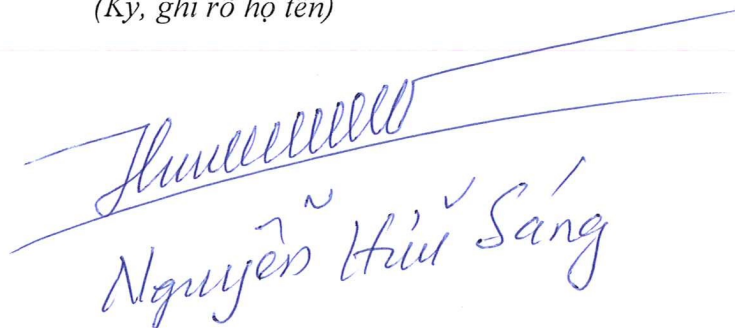 (Ký, ghi rõ họ tên)
Nguyễn Hữu Sáng